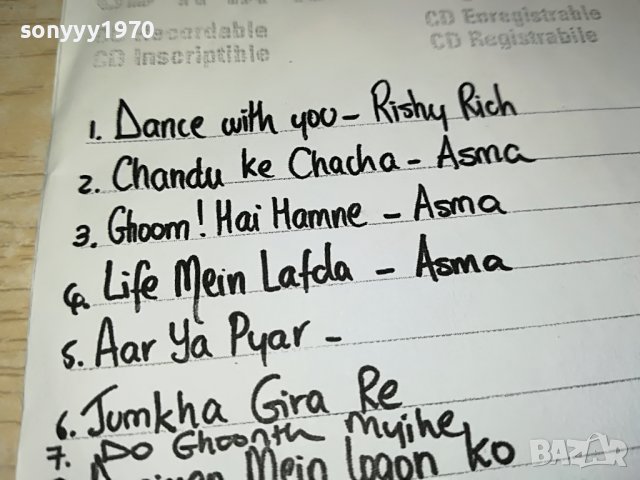 sonyyy1970
CD Enregistrable
Recordable
CD Registrabile
CD Inscriptible
1. Dance with you - Rishy Rich
2. Chandu ke Chacha - Asma
3. Ghoom! Hai Hamne - Asma
4. Life Mein Lafda - Asma
5. Aar Ya Pyar -
6. Jumkha Gira Re
7. Do Ghoonth Mujhe
Mein logon ko
BAZAR